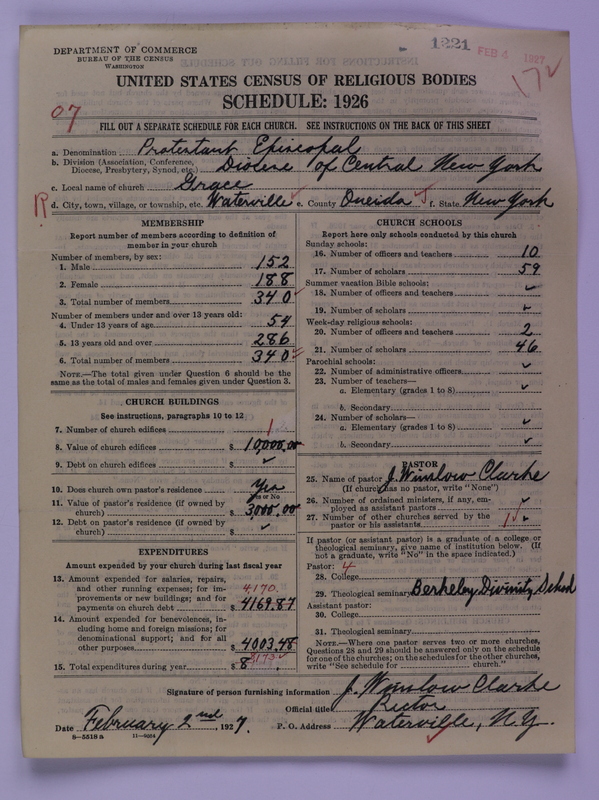 DEPARTMENT OF COMMERCE
BUREAU OF THE CENSUS
WASHINGTON
1221 FEB 4 1927
172
UNITED STATES CENSUS OF RELIGIOUS BODIES
SCHEDULE: 1926
07
FILL OUT A SEPARATE SCHEDULE FOR EACH CHURCH. SEE INSTRUCTIONS ON THE BACK OF THIS SHEET
a. Denomination Protestant Episcopal
b. Division (Association, Conference, Diocese, Presbytery, Synod, etc.) Diocese of Central New York
c. Local name of church Grace
R d. City, town, village, or township, etc. Waterville e. County Oneida f. State New York
MEMBERSHIP
Report number of members according to definition of
member in your church
Number of members, by sex:
1. Male 152
2. Female 188
3. Total number of members 340
Number of members under and over 13 years old:
4. Under 13 years of age 54
5. 13 years old and over 286
6. Total number of members 340
NOTE.—The total given under Question 6 should be the
same as the total of males and females given under Question 3.
CHURCH BUILDINGS
See instructions, paragraphs 10 to 12
7. Number of church edifices 1
8. Value of church edifices $10,000.00
9. Debt on church edifices $ ✓
10. Does church own pastor's residence Yes
Yes or No
11. Value of pastor's residence (if owned by
church) $3000.00
12. Debt on pastor's residence (if owned by
church) $ ✓
EXPENDITURES
Amount expended by your church during last fiscal year
13. Amount expended for salaries, repairs,
and other running expenses; for im-
provements or new buildings; and for
payments on church debt 4170. $4169.87
14. Amount expended for benevolences, in-
cluding home and foreign missions; for
denominational support; and for all
other purposes $4003.48
15. Total expenditures during year $8173
CHURCH SCHOOLS
Report here only schools conducted by this church
Sunday schools:
16. Number of officers and teachers 10
17. Number of scholars 59
Summer vacation Bible schools:
18. Number of officers and teachers ✓
19. Number of scholars ✓
Week-day religious schools:
20. Number of officers and teachers 2
21. Number of scholars 46
Parochial schools:
22. Number of administrative officers ✓
23. Number of teachers—
a. Elementary (grades 1 to 8) ✓
b. Secondary ✓
24. Number of scholars—
a. Elementary (grades 1 to 8) ✓
b. Secondary ✓
PASTOR
25. Name of pastor J. Winslow Clarke
(If church has no pastor, write "None")
26. Number of ordained ministers, if any, em-
ployed as assistant pastors ✓
27. Number of other churches served by the
pastor or his assistants 1 ✓
If pastor (or assistant pastor) is a graduate of a college or
theological seminary, give name of institution below. (If
not a graduate, write "No" in the space indicated.)
Pastor: 4
28. College
29. Theological seminary Berkeley Divinity School
Assistant pastor:
30. College
31. Theological seminary
NOTE.—Where one pastor serves two or more churches,
Questions 28 and 29 should be answered only on the schedule
for one of the churches; on the schedules for the other churches,
write "See schedule for church."
Signature of person furnishing information J. Winslow Clarke
Official title Rector
Date February 2nd, 1927. P. O. Address Waterville, N.Y.
8—5518 a